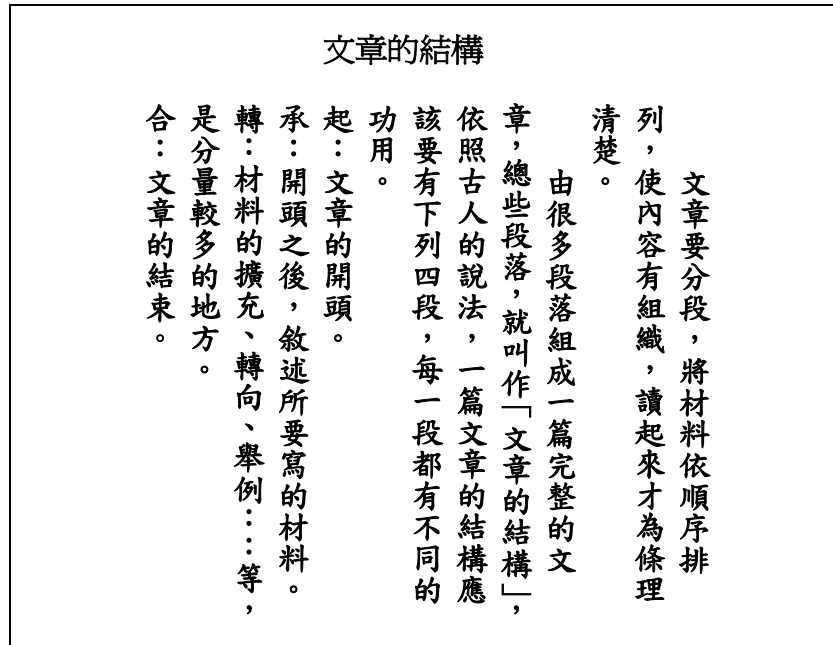 文章的結構
文章要分段，將材料依順序排
列，使內容有組織，讀起來才為條理
清楚。
由很多段落組成一篇完整的文
章，總些段落，就叫作「文章的結構」，
依照古人的說法，一篇文章的結構應
該要有下列四段，每一段都有不同的
功用。
起：文章的開頭。
承：開頭之後，敘述所要寫的材料。
轉：材料的擴充、轉向、舉例……等，
是分量較多的地方。
合：文章的結束。